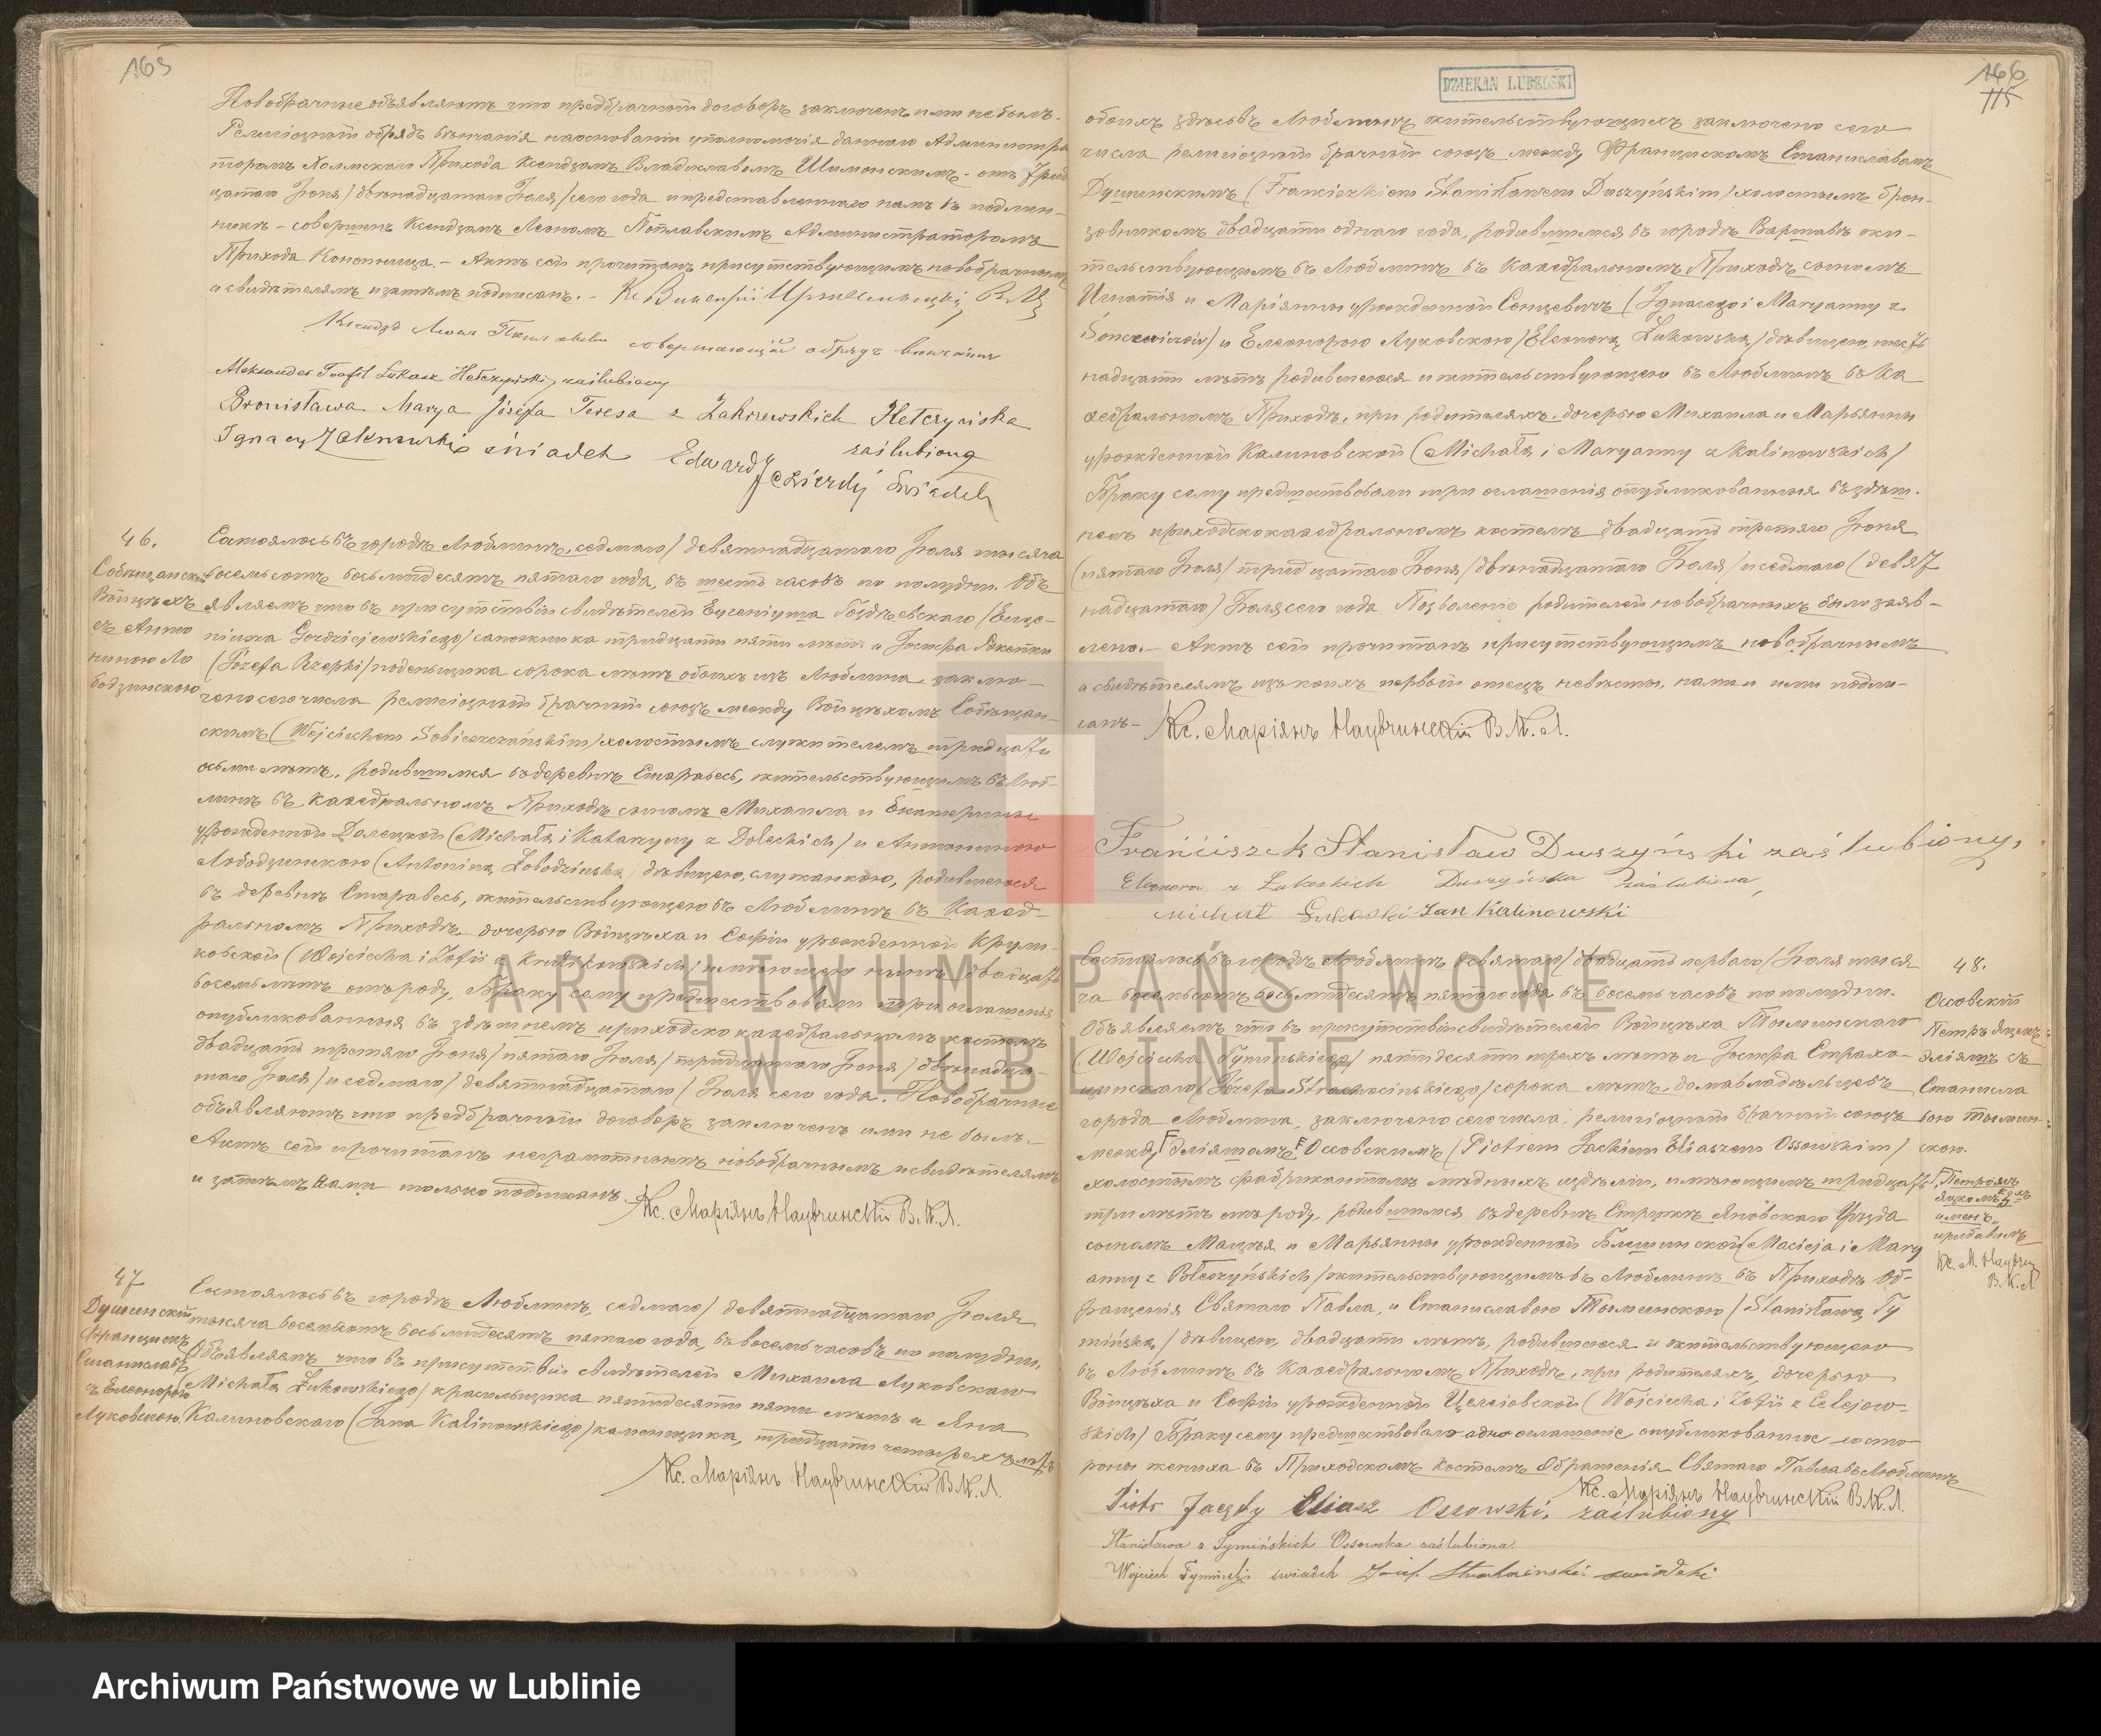 165
Новобрачные объявляютъ что предбрачный договоръ заключенъ ими не былъ.-
Религіозный обрядъ вѣнчанія на основаніи уполномочія даннаго Администра
торомъ Холмскаго Прихода Ксендзомъ Владиславомъ - отъ трид
цатаго Іюня / двѣнадцатаго Іюля / сего года и представленнаго намъ въ подлин-
никѣ - совершенъ Ксендзомъ Леономъ Администраторомъ
Прихода Конопница. - Актъ сей прочитанъ присутствующимъ новобрачнымъ
и свидѣтелямъ и затѣмъ подписанъ. - Кс. Викентій
Ксендзъ Леонъ совершающій обрядъ вѣнчанія
Aleksander Teofil Łukasz Hetczyński, zaślubiony
Bronisława Marya Józefa Teresa z Zakrzewskich Hetczyńska
zaślubiona
Ignacy Zakrzewski świadek Edward Jezierski świadek
46.
Собѣщанскій
Войцѣхъ
съ Анто
ниною Ло
бодзинскою
Состоялось въ городѣ Люблинѣ, седмаго / девятнадцатаго Іюля тысяча
восемьсотъ восьмидесятъ пятаго года, въ шесть часовъ по полудни. Объ
являемъ что въ присутствіи свидѣтелей Евгеніуша Гоздзѣевскаго (Euge-
niusza Gozdziejewskiego) сапожника тридцати пяти лѣтъ и Іосифа Ржепки
(Józefa Rzepki) поденьщика сорока лѣтъ обоихъ изъ Люблина, заклю-
чено сего числа религіозный брачный союзъ между Войцѣхомъ Собѣщан-
скимъ (Wojciechem Sobieszczańskim) холостымъ служителемъ тридцати
осьми лѣтъ, родившимся въ деревнѣ Старавесь, жительствующимъ въ Люб-
линѣ въ Каѳедральномъ Приходѣ сыномъ Михаила и Екатерины
урожденной Долецкой (Michała i Katarzyny z Doleckich) и Антониною
Лободзинскою (Antoniną Łobodzińską) дѣвицею, служанкою, родившеюся
въ деревнѣ Старавесь, жительствующею въ Люблинѣ въ Каѳед-
ральномъ Приходѣ дочерью Войцѣха и Софіи урожденной Крули-
ковской (Wojciecha i Zofii z Krulikowskich) имѣющею нынѣ двадцать
восемь лѣтъ отъ роду. Браку сему предшествовали три оглашенія
опубликованныя въ здѣшнемъ приходско каѳедральномъ костелѣ
двадцать третяго Іюня / пятаго Іюля / тридцатаго Іюня / двѣнадца-
таго Іюля / и седмаго / девятнадцатаго / Іюля сего года. Новобрачные
объявляютъ что предбрачный договоръ заключенъ ими не былъ.-
Актъ сей прочитанъ неграмотнымъ новобрачнымъ и свидѣтелямъ
и затѣмъ Нами только подписанъ.
Кс. Маріянъ В.К.Л.
47
Душинскій
Францискъ
Станиславъ
съ Елеонорою
Луковскою.
Состоялось въ городѣ Люблинѣ, седмаго / девятнадцатаго Іюля
тысяча восемьсотъ восьмидесятъ пятаго года, въ восемь часовъ по полудни.
Объявляемъ что въ присутствіи свидѣтелей Михаила Луковскаго
(Michała Łukowskiego) красильщика пятидесяти пяти лѣтъ и Яна
Калиновскаго (Jana Kalinowskiego) каменщика, тридцати четырехъ лѣтъ
Кс. Маріянъ В.К.Л.
DZIEKAN LUBELSKI
166
115
обоихъ здѣсь въ Люблинѣ жительствующихъ заключено сего
числа религіозный брачный союзъ между Францискомъ Станиславомъ
Душинскимъ (Franciszkiem Stanisławem Duszyńskim) холостымъ брон-
зовникомъ двадцати одного года, родившимся въ городѣ Варшавѣ жи-
тельствующимъ въ Люблинѣ въ Каѳедральномъ Приходѣ сыномъ
Игнатія и Маріянны урожденной Сонцевичъ (Ignacego i Maryanny z
Soncewiczów) и Елеонорою Луковскою (Eleonorą Łukowską) дѣвицею, шест
надцати лѣтъ родившеюся и жительствующею въ Люблинѣ въ Ка
ѳедральномъ Приходѣ, при родителяхъ, дочерью Михаила и Марьянны
урожденной Калиновской (Michała i Maryanny z Kalinowskich)
Браку сему предшествовали три оглашенія опубликованныя въ здѣш-
немъ приходскокаѳедральномъ костелѣ двадцать третяго Іюня
(пятаго Іюля) тридцатаго Іюня / двѣнадцатаго Іюля / и седмаго (девят
надцатаго) Іюля сего года. Позволеніе родителей новобрачныхъ было заяв-
лено. - Актъ сей прочитанъ присутствующимъ новобрачнымъ
и свидѣтелямъ изъ коихъ первый отецъ невѣсты, нами и ими подпи-
санъ - Кс. Маріянъ В.К.Л.
Franciszek Stanisław Duszyński zaślubiony,
Eleonora z Łukoskich Duszyńska zaślubiona,
Michał Łukoski Jan Kalinowski
48.
Оссовскій
Петръ Яцекъ
Эліяшъ съ
Станисла
вою Тымин-
скою.
Состоялось въ городѣ Люблинѣ девятаго / двадцать перваго / Іюля тыся
ча восемьсотъ восьмидесятъ пятаго года въ восемь часовъ по полудни.
Объявляемъ что въ присутствіи свидѣтелей Войцѣха Тыминскаго
(Wojciecha Tymińskiego) пятидесяти трехъ лѣтъ и Іосифа Страхо-
цинскаго (Józefa Strachocińskiego) сорока лѣтъ, домавладѣльцевъ
города Люблина, заключено сего числа религіозный брачный союзъ
между Эліяшомъ Оссовскимъ (Piotrem Jackiem Eliaszem Ossowskim)
холостымъ фабрикантомъ мѣдныхъ издѣлій, имѣющимъ тридцать
три лѣтъ отъ роду, родившимся въ деревнѣ Яновскаго Уѣзда
сыномъ Мацѣя и Марьянны урожденной Блещинской (Macieja i Mary
anny z Błeszyńskich) жительствующимъ въ Люблинѣ въ Приходѣ Об-
ращенія Святаго Павла, и Станиславою Тыминскою (Stanisławą Ty
mińską) дѣвицею, двадцати лѣтъ, родившеюся и жительствующею
въ Люблинѣ въ Каѳедральномъ Приходѣ, при родителяхъ, дочерью
Войцѣха и Софіи урожденной Целейовской (Wojciecha i Zofii z Celejow-
skich) Браку сему предшествовало одно оглашеніе опубликованное со сто
роны жениха въ Приходскомъ костелѣ Обращенія Святаго Павла въ Люблинѣ
Петромъ
Яцкомъ
именъ
прибавилъ
Кс. М.
В.К.Л
Кс. Маріянъ В.К.Л.
Piotr Jacęty Eliasz Ossowski, zaślubiony
Stanisława z Tymińskich Ossowska zaślubiona.
Wojciech Tymiński świadek Józef
ARCHIWUM PAŃSTWOWE
W LUBLINIE
Archiwum Państwowe w Lublinie